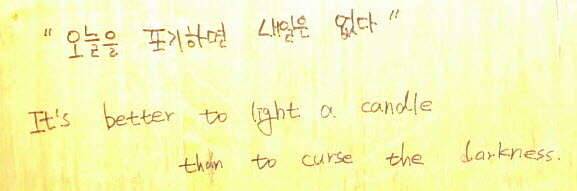 " 오늘을 포기하면 내일은 없다 "
It's better to light a candle
than to curse the darkness.